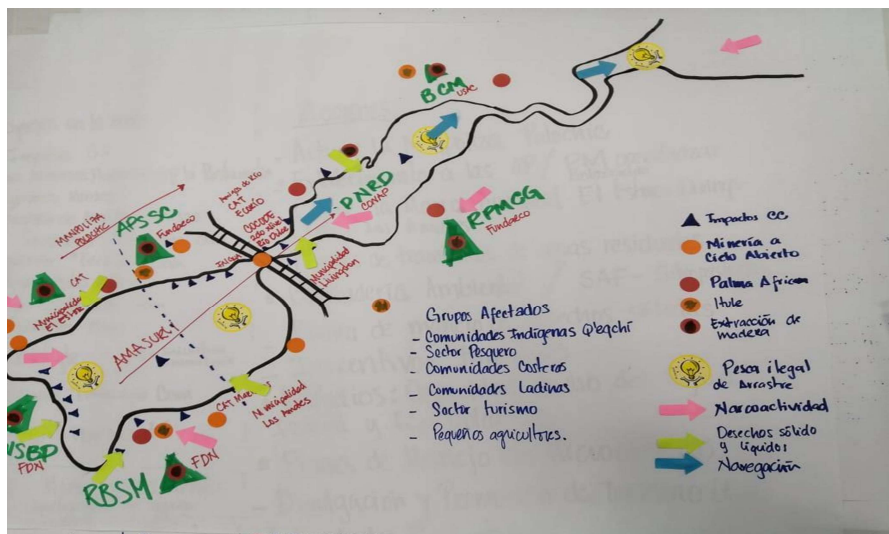 BCM
USAC
PNRD
CONAP
RPMCG
Fundaeco
APSSC
Fundaeco
CAT
AMASURLI
Amigos de Río
CAT
COCODE
Río Dulce
INGUAT
Municipalidad
Livingston
CAT
Municipalidad
Los Amates
FDN
RBSM
FDN
Grupos Afectados
- Comunidades Indígenas Q'eqchí
- Sector Pesquero
- Comunidades Costeros
- Comunidades Ladinas
- Sector turismo
- Pequeños agricultores.
Impactos CC
Minería a
Cielo Abierto
Palma African
Hule
Extracción de
madera
Pesca ilegal
de Arrastre
Narcoactividad
Desechos sólido
y líquidos
Navegación